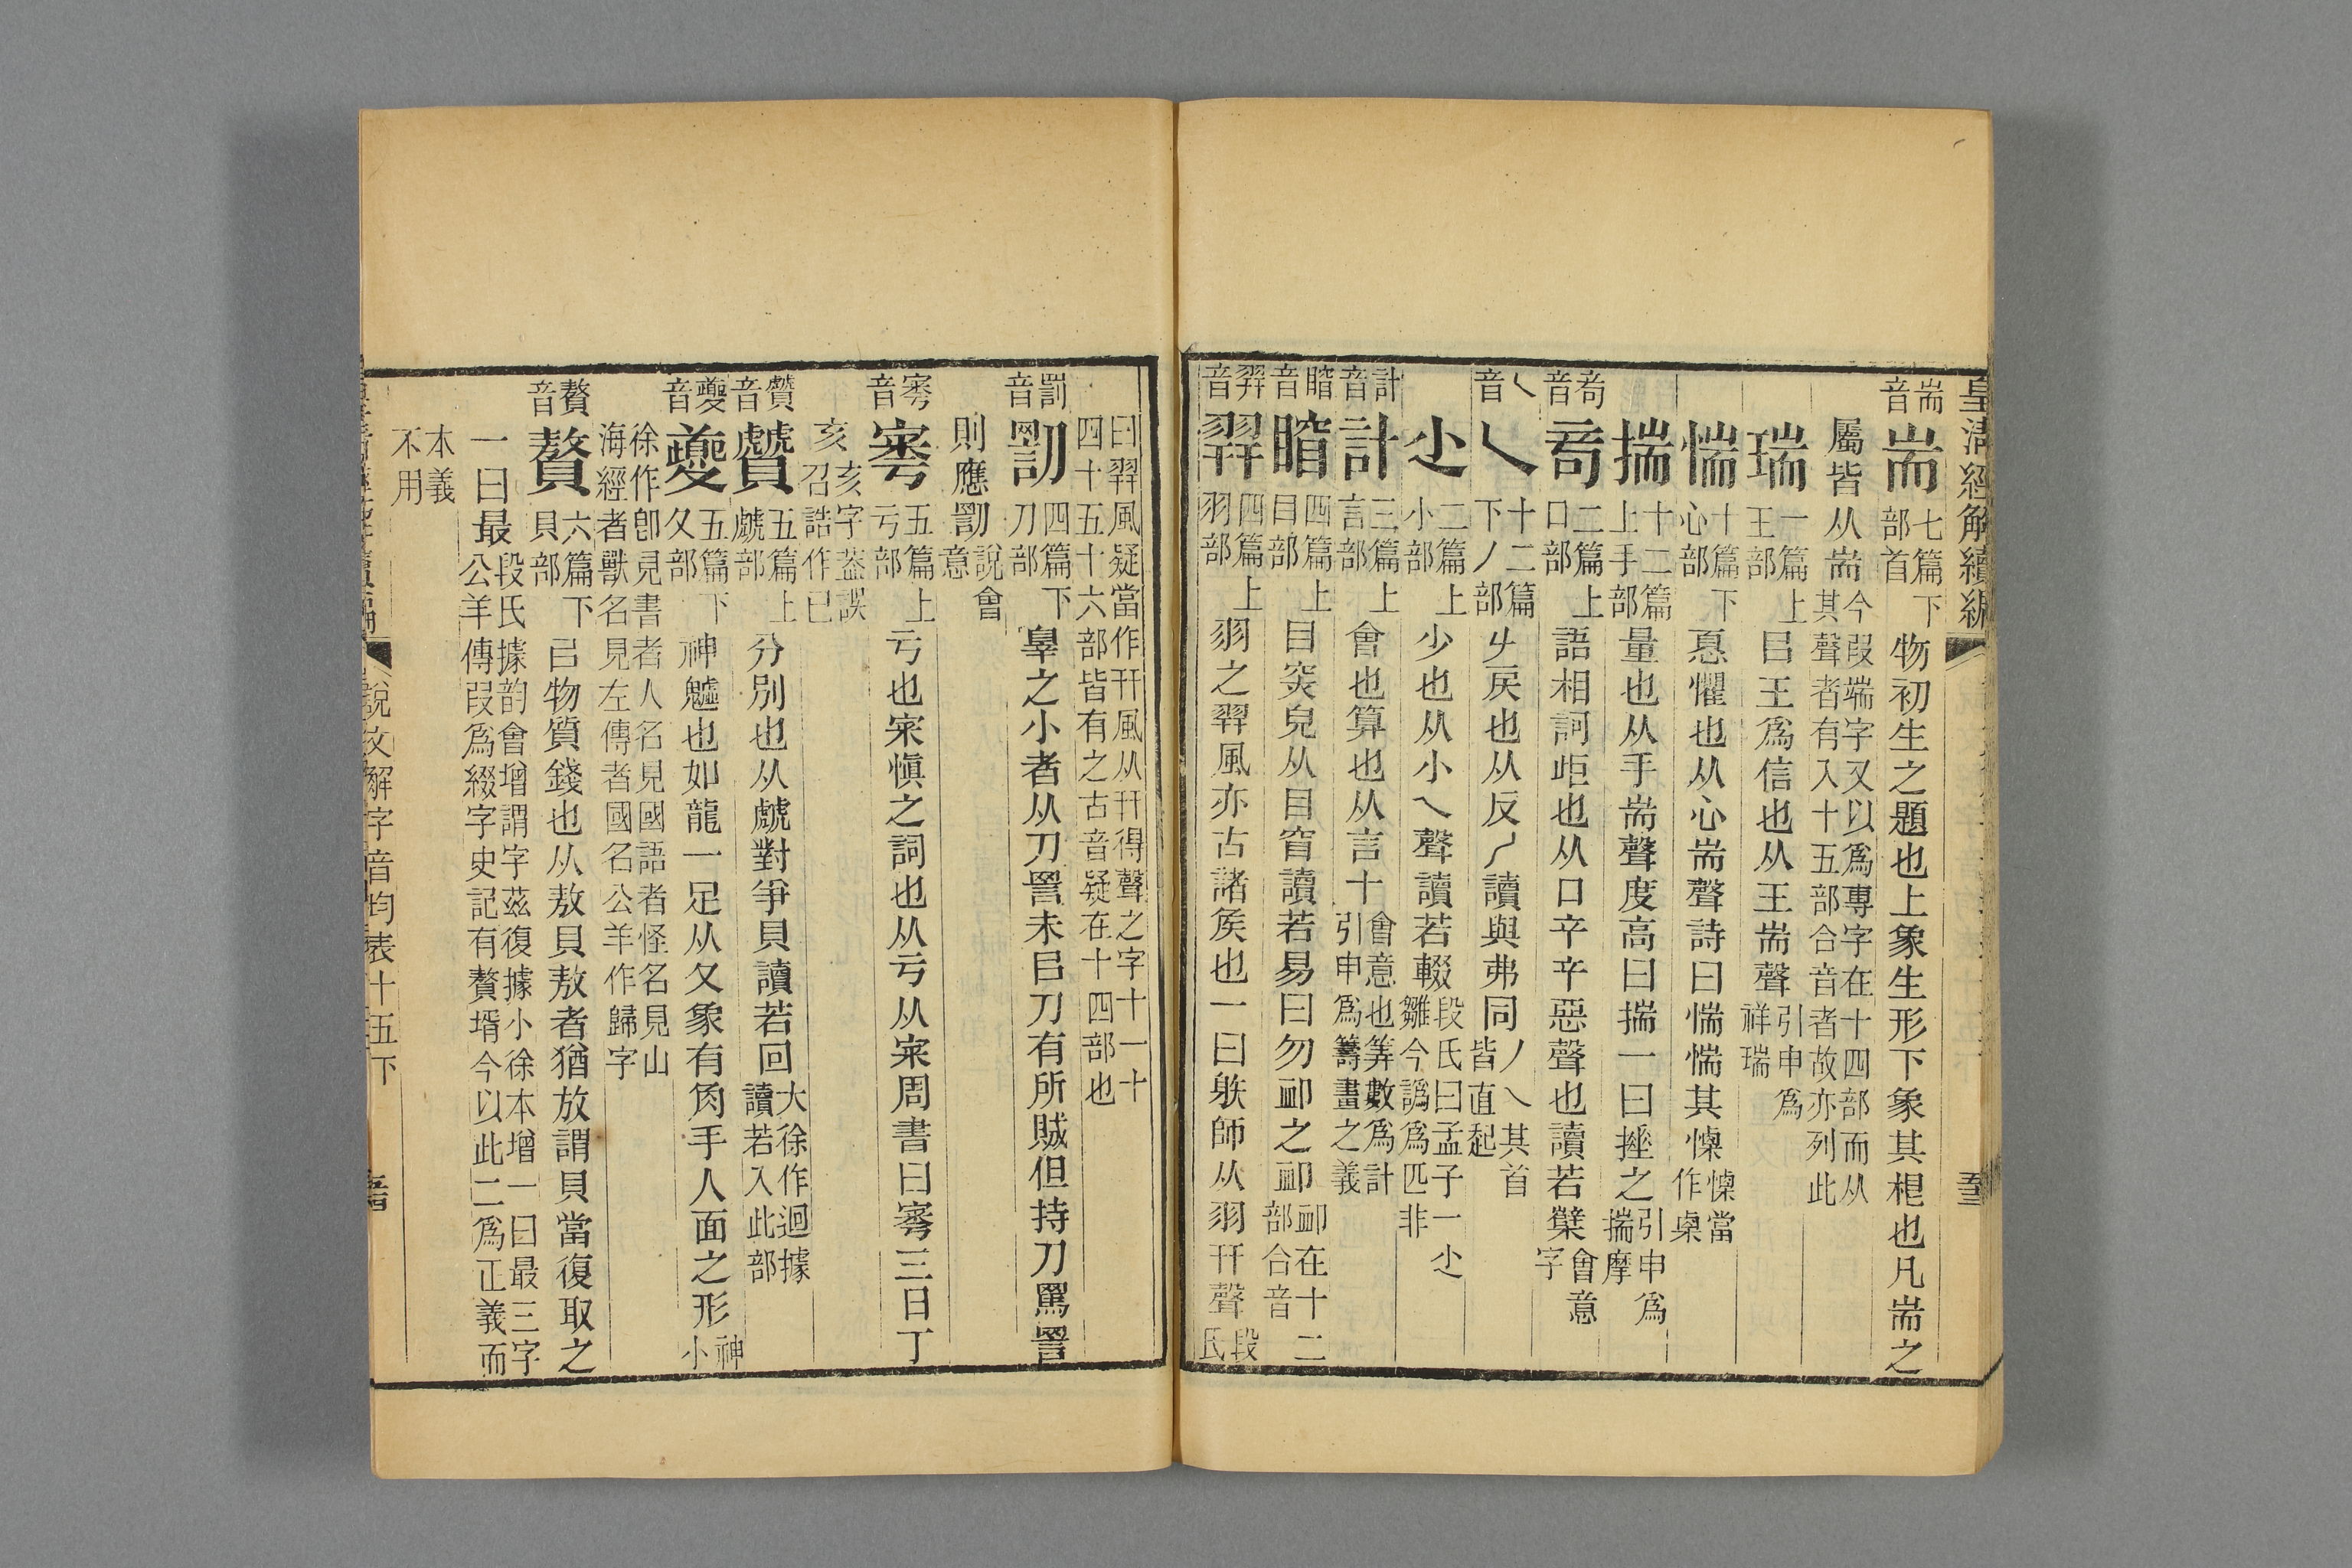 皇清經解續編
耑音 耑 七篇下部首 物初生之題也上象生形下象其根也凡耑之
屬皆从耑 今叚端字又以爲專字在十四部而从其聲者有入十五部合音者故亦列此
瑞 一篇上王部 㠯王爲信也从王耑聲 引申爲祥瑞
惴 十篇下心部 惪懼也从心耑聲詩曰惴惴其慄 慄當作㮚
揣 十二篇上手部 量也从手耑聲度高曰揣一曰捶之 引申爲揣摩
咅音 㖕 二篇上口部 語相訶歫也从口䇂䇂惡聲也讀若櫱 會意字
乀音 乀 十二篇下丿部 𠂇戾也从反丿讀與弗同 丿乀其首皆直起
尐 二篇上小部 少也从小乀聲讀若輟 段氏曰孟子一尐雛今譌爲匹非
計音 計 三篇上言部 會也算也从言十 會意也筭數爲計引申爲籌畫之義
䁓音 䁓 四篇上目部 目突皃从目窅讀若易曰勿䘏之䘏 䘏在十二部合音
羿音 羿 四篇上羽部 羽之羿風亦古諸矦也一曰䠶師从羽幵聲 段氏
曰羿風疑當作幵風从幵得聲之字十一十四十五十六部皆有之古音疑在十四部也
罰音 罰 四篇下刀部 辠之小者从刀詈未㠯刀有所賊但持刀罵詈
則應罰 說會意
寋音 寋 五篇上亏部 亏也宷愼之詞也从亏从宷周書曰寋三日丁
亥 亥字葢誤召誥作已
贙音 贙 五篇上虤部 分別也从虤對爭貝讀若回 大徐作迴據讀若入此部
夔音 夔 五篇下夊部 神魖也如龍一足从夊象有角手人面之形 神小
徐作卽見書者人名見國語者怪名見山海經者獸名見左傳者國名公羊作歸字
贅音 贅 六篇下貝部 㠯物質錢也从敖貝敖者猶放謂貝當復取之
一曰最 段氏據韵會增謂字茲復據小徐本增一曰最三字公羊傳叚爲綴字史記有贅壻今以此二爲正義而
本義不用
說文解字音均表十五下